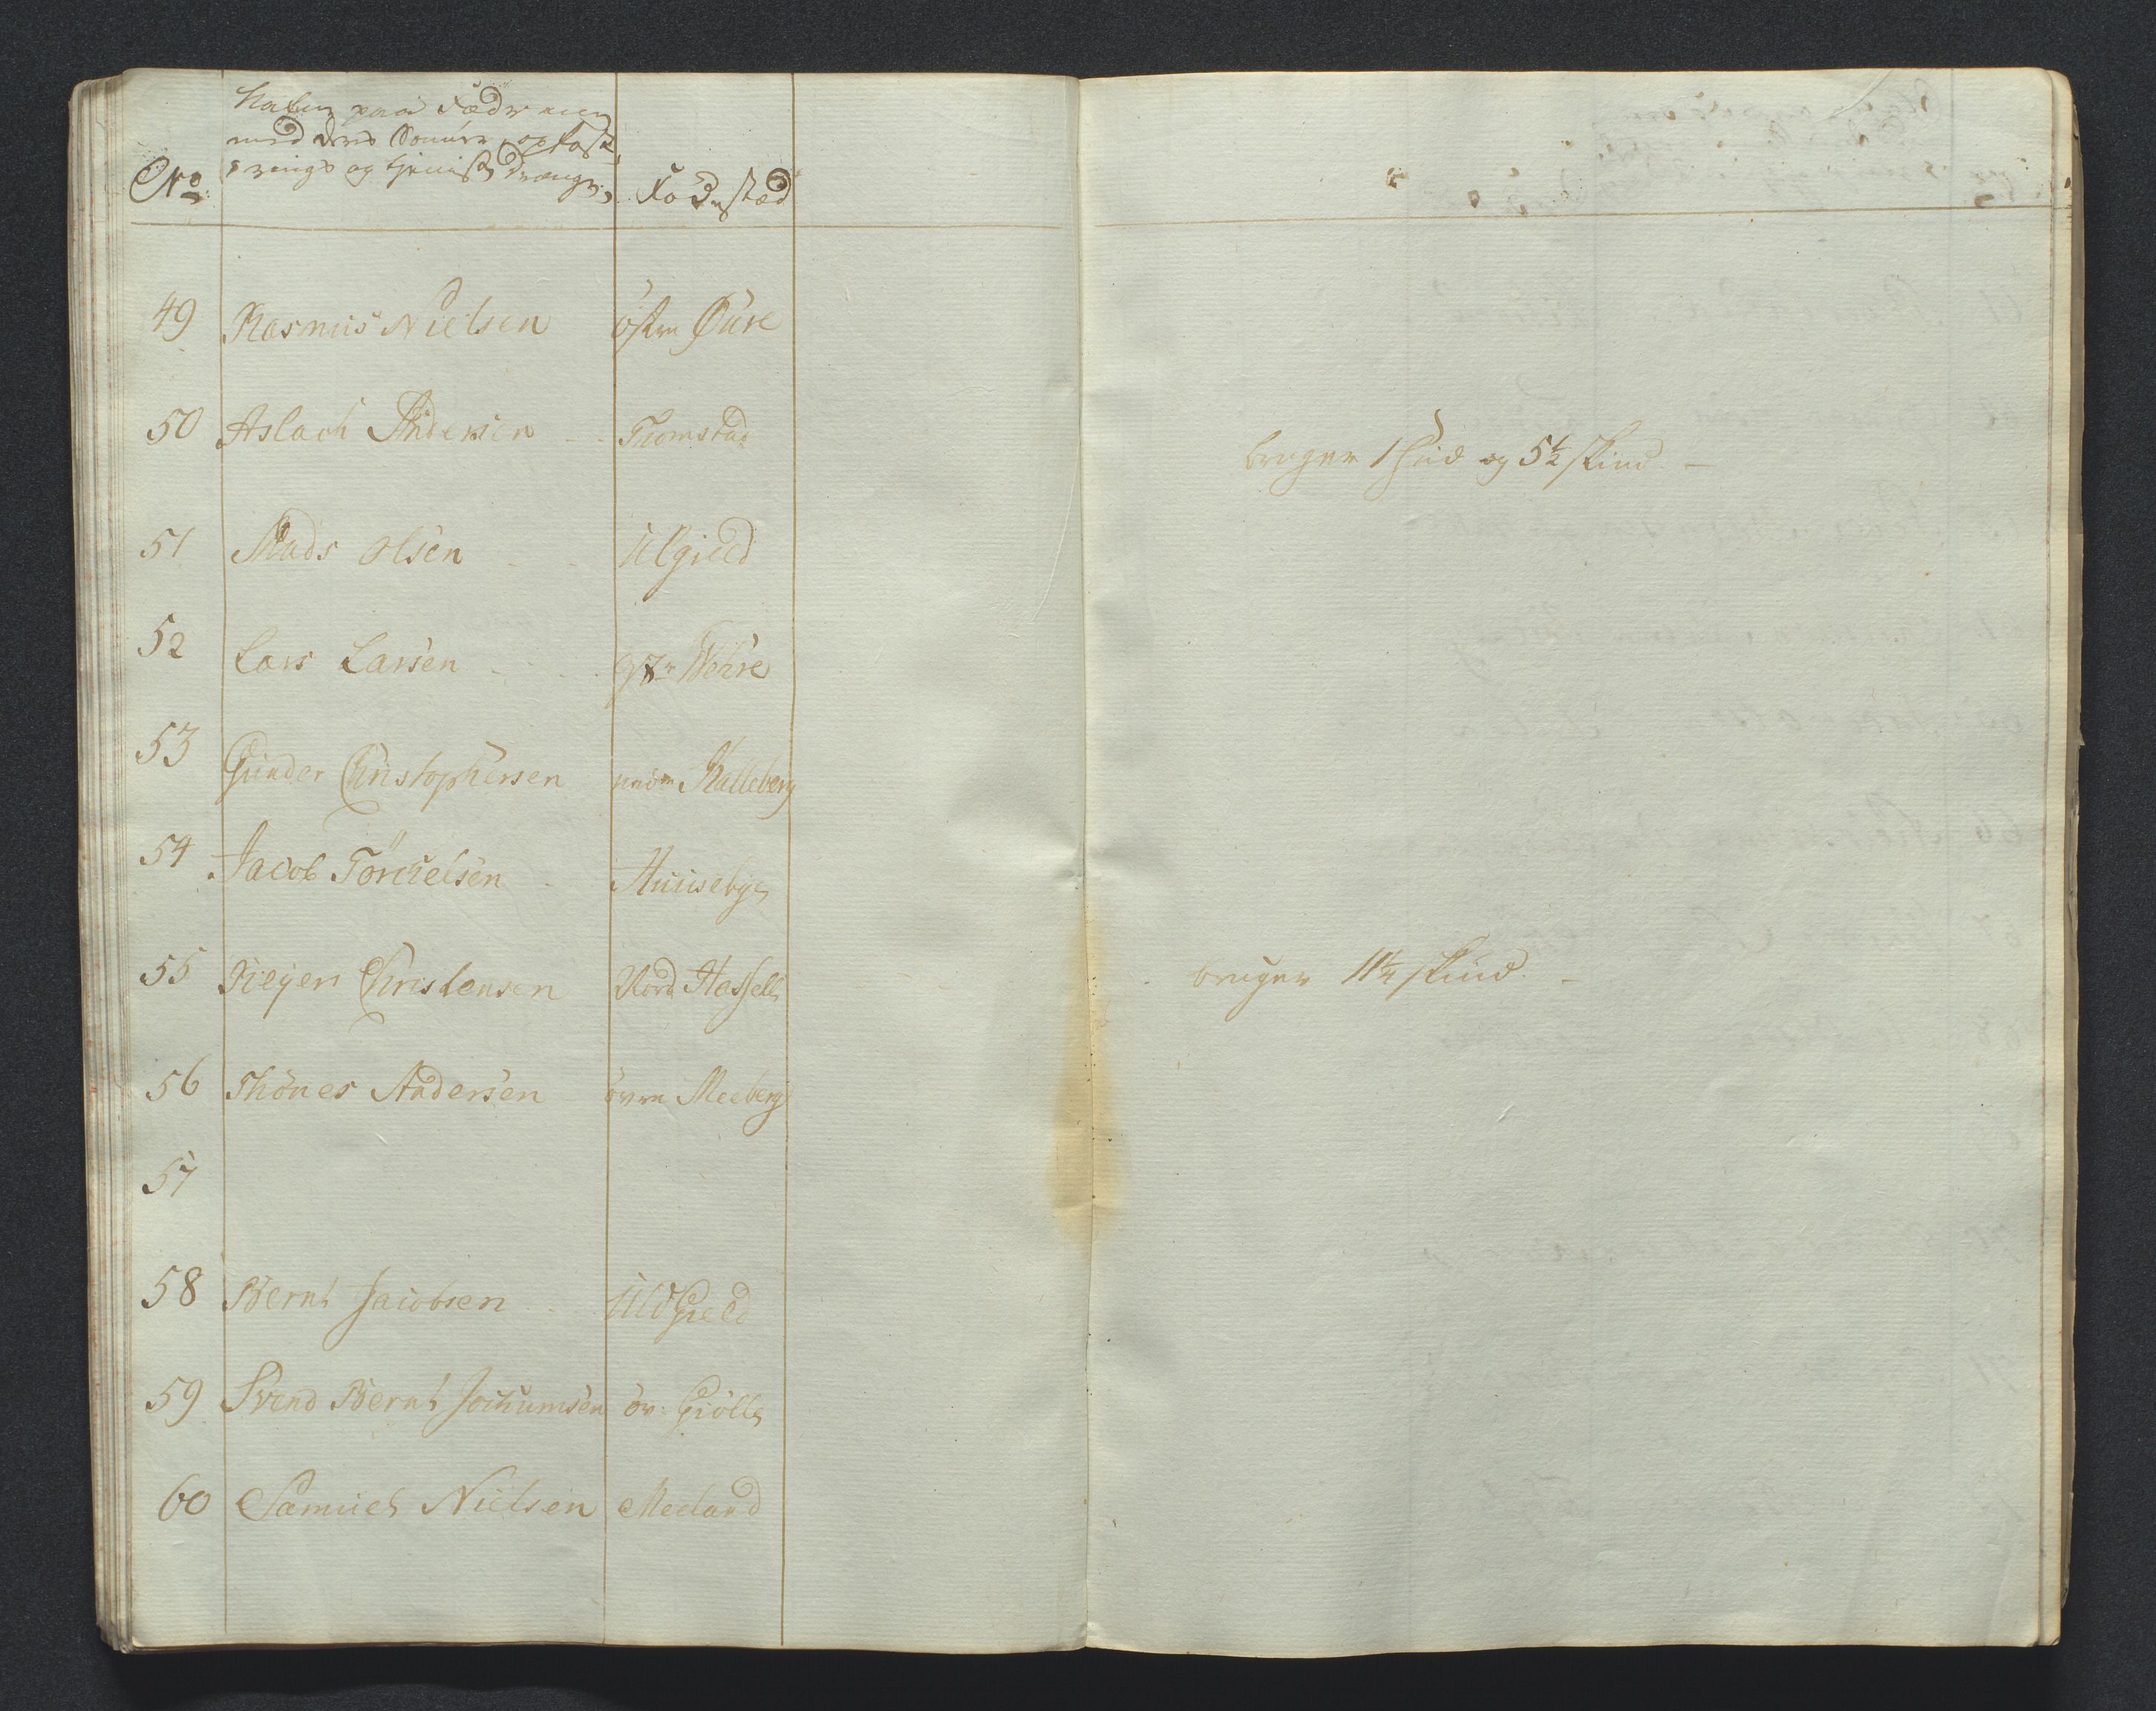 Nafun paa Fædrenen
med deres Sønner, opfost
No rings og tieniste Drenge, Fødested
49 Rasmus Nielsen östre Öure
50 Aslach Andersen Tiomstad
51 Mads Olsen Ulgield
52 Lars Larsen Wehre
53 Gunder Christophersen nedre Kalleberg
54 Jacob Törchelsen Huuseby
55 Reyer Christensen Nord Hassell
56 Thönes Andersen övre Meeberg
57
58 Bernt Jacobsen Uldgield
59 Svend Bernt Jochumsen öv: Giölle
60 Samuel Nielsen Meeland
bruger 1 hud og 5½ skind –
bruger 11¼ skind –